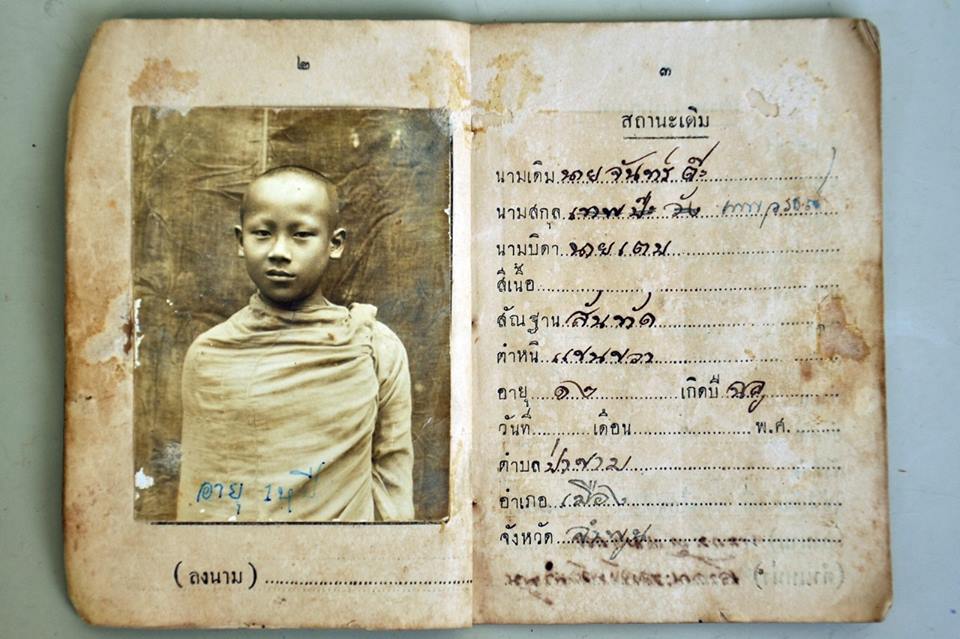 ๒
อายุ ๑๒ ปี
(ลงนาม)
๓
สถานะเดิม
นามเดิม นาย จันทร์ ต๊ะ
นามสกุล เทพ
นามบิดา นาย เตม
สีเนื้อ
สัณฐาน สันทัด
ตำหนิ แขนขวา
อายุ ๑๒ เกิดปี
วันที่ เดือน พ.ศ.
ตำบล ป่าซาง
อำเภอ เมือง
จังหวัด ลำพูน